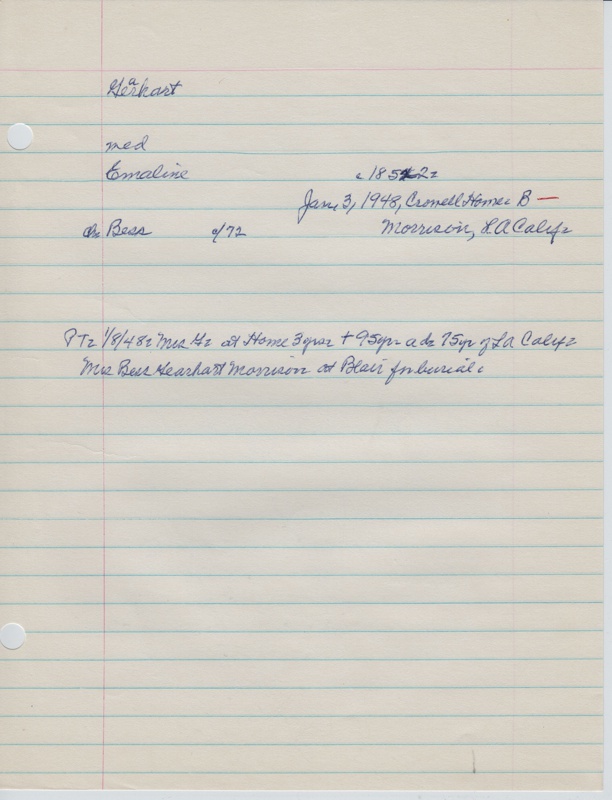 Gearkart
med
Emaline c 1852
Jan. 3, 1948, Crowell Home B —
ch Bess c/72 Morrison, LA Calif
PT 1/8/48 Mrs G at Home 3yrs + 95yr a da 75yr of LA Calif
Mrs Bess Gearhart Morrison at Blair for burial